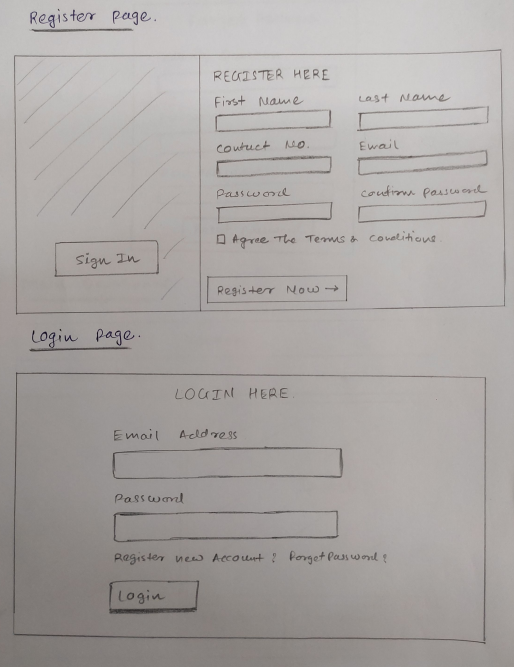 Register Page.
REGISTER HERE
First Name
Last Name
Contact No.
Email
Password
Confirm Password
Agree The Terms & Conditions.
Sign In
Register Now →
Login Page.
LOGIN HERE.
Email Address
Password
Register new Account? Forget Password?
Login